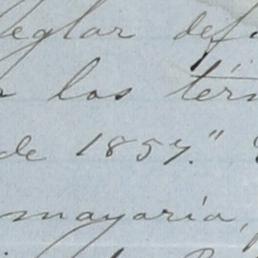 reglar def
los tér
de 1857."
mayoría,